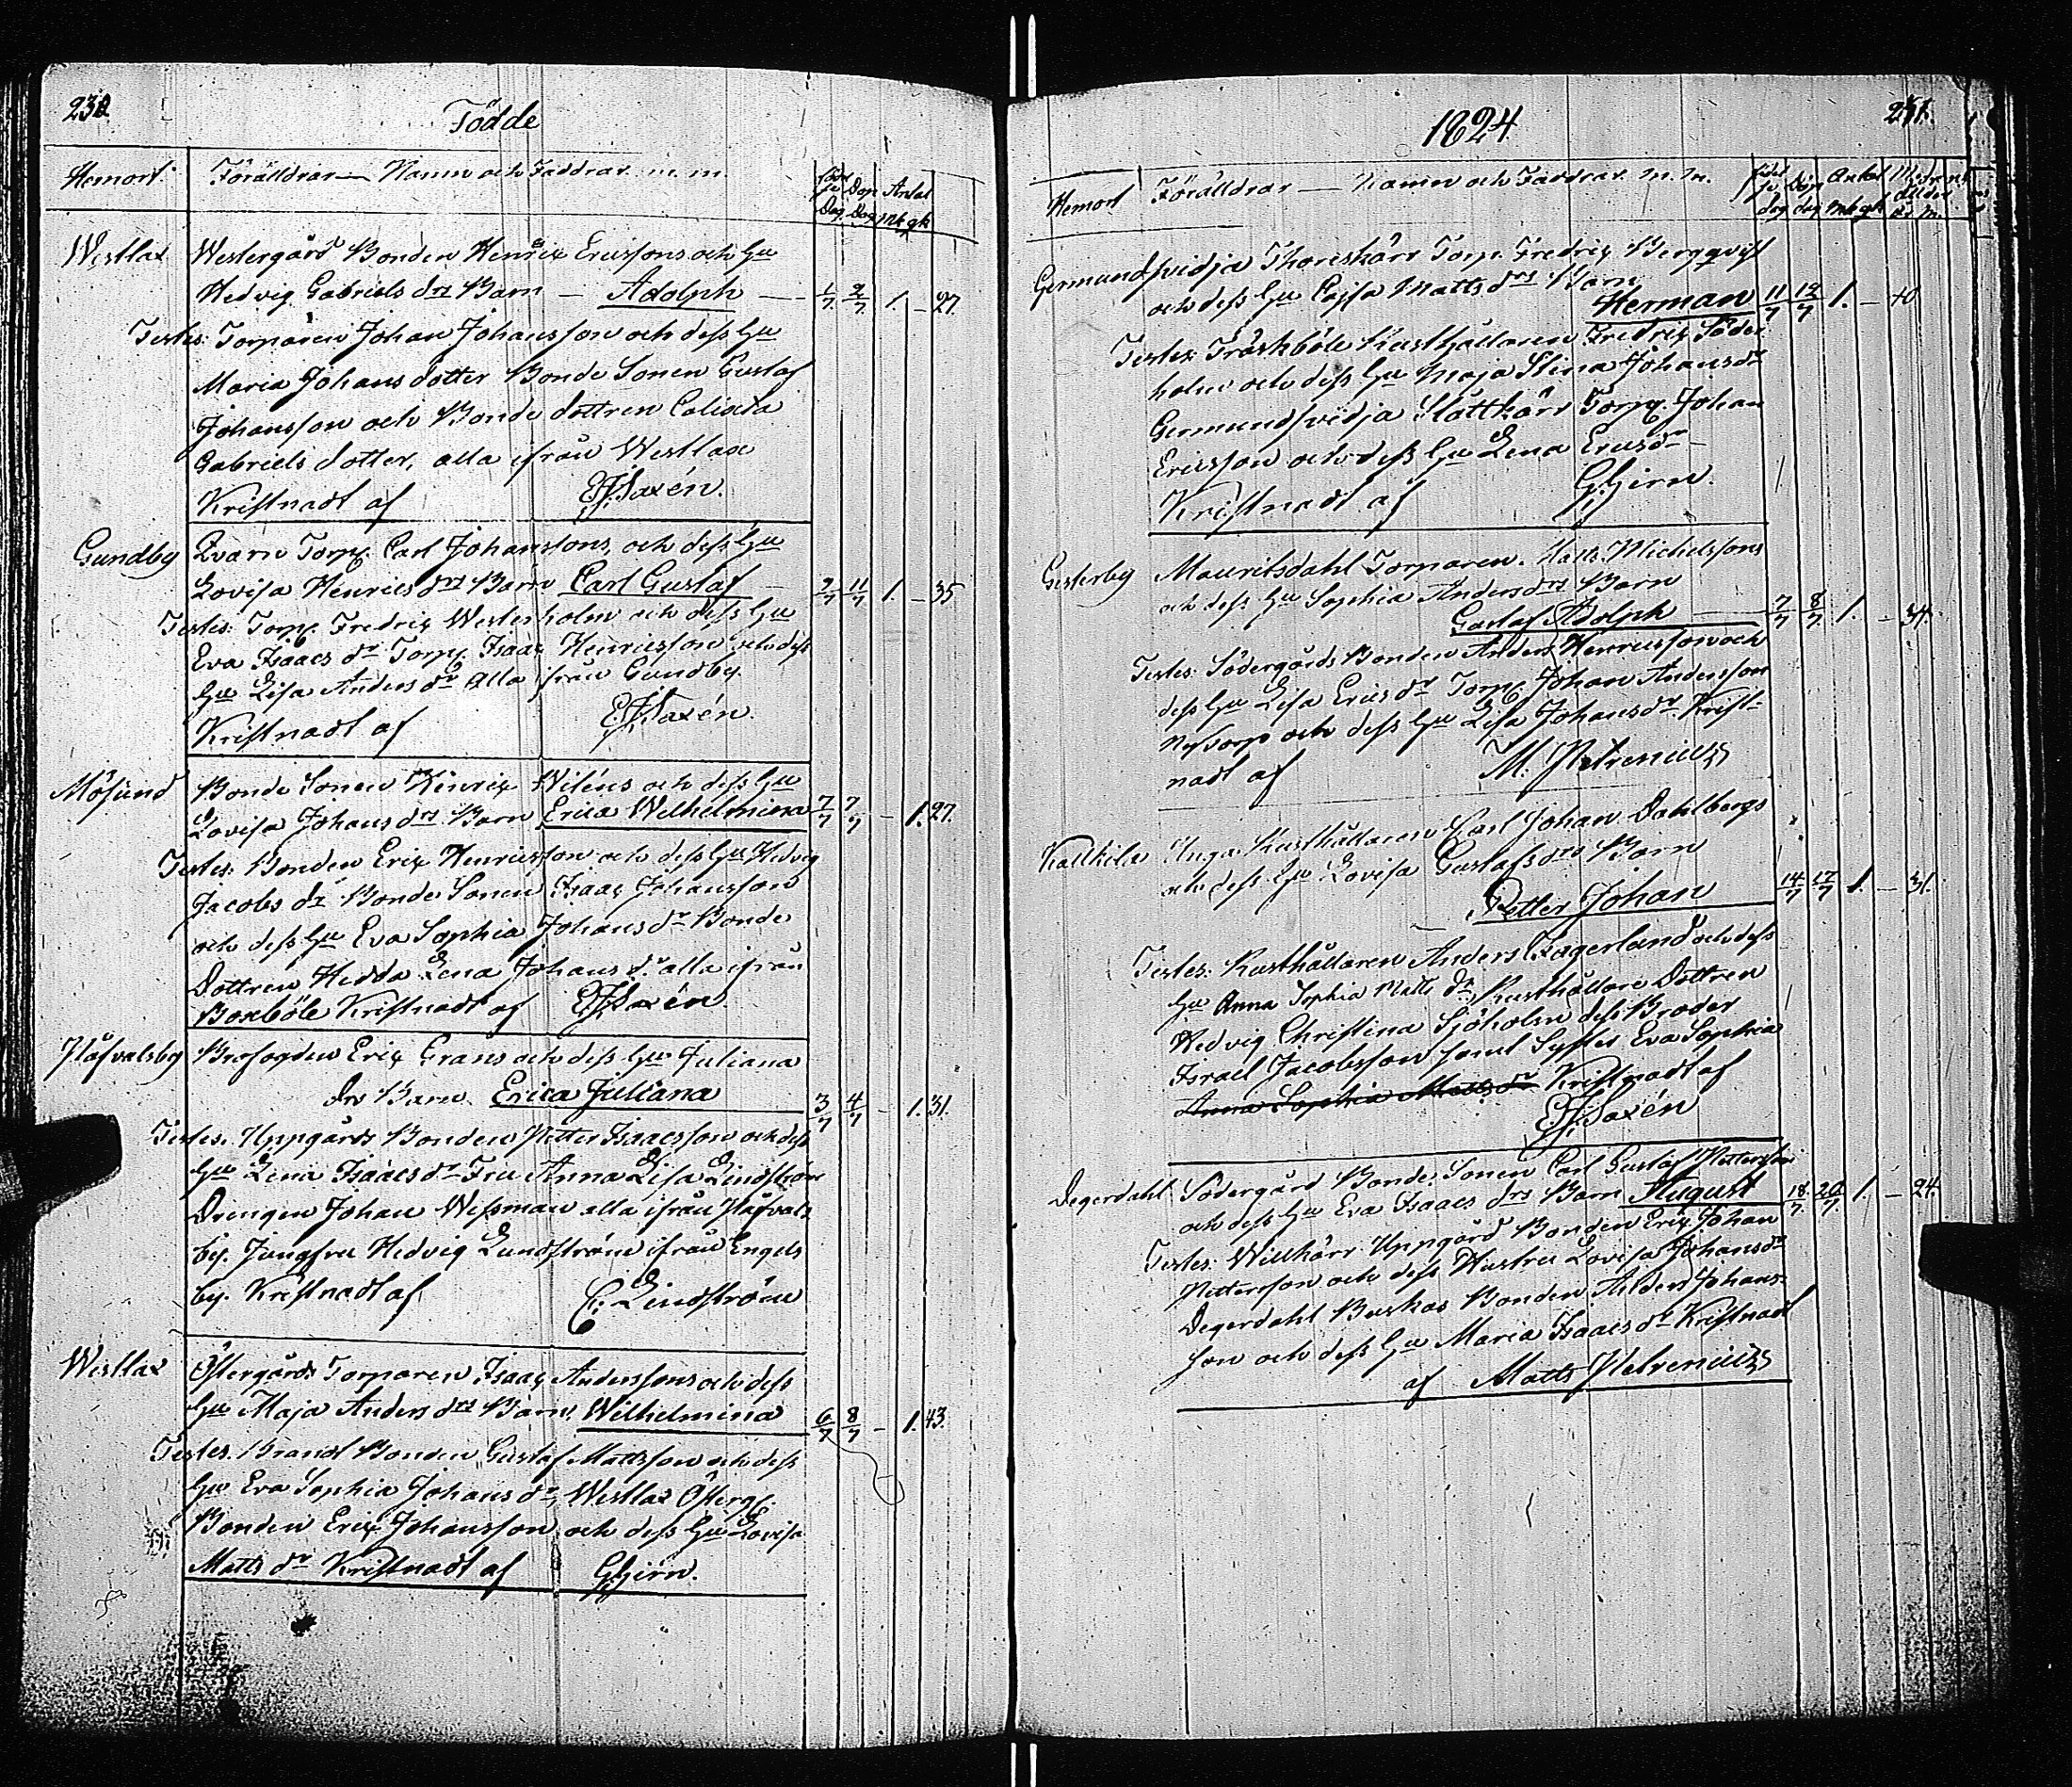 230
Födde
Hemort. Föräldrar — Namn och Faddrar m. m. Född Dag Dop Dag Antal mk qk
Westlax Westergård Bonden Henric Ericssons och Hu
Hedvig Gabriels drs Barn — Adolph — 1/7 2/7 1. — 27.
Testes: Torparen Johan Johansson och dess Hu
Maria Johans dotter Bonde Sonen Gustaf
Johansson och Bonde dottren
Gabriels dotter, alla ifrån Westlax
Kristnadt af E.J. Saxén.
Gundby Qvarn Torp. Carl Johanssons, och dess Hu
Lovisa Henrics drs Barn Carl Gustaf — 11/7 1. — 35
Testes: Torp. Fredric Westerholm och dess Hu
Eva Isaacs dr Torp. Isaac Henricsson och dess
Hu Lisa Anders dr Alla ifrån Gundby.
Kristnadt af E.J. Saxén.
Mösund Bonde Sonen Hinric Wiléns och dess Hu
Lovisa Johans drs Barn Erica Wilhelmina 7/7 7/7 — 1. 27.
Testes: Bonden Eric Henricsson och dess Hu Hedvig
Jacobs dr Bonde Sonen Isaac Johansson
och dess Hu Eva Sophia Johans dr Bonde
Dottren Hedda Lena Johans dr alla ifrån
Boxböle Kristnadt af E.J. Saxén.
Påfvalsby Brofogden Eric Grans och dess Hu Juliana
drs Barn Erica Juliana 3/7 4/7 — 1. 31.
Testes. Uppgårds Bonden Petter Isaacsson och dess
Hu Lena Isaacs dr Fru Anna Lisa Lindström
Drengen Johan Wessman alla ifrån Påfvals
by. Jungfru Hedvig Lundström ifrån Engels
by. Kristnadt af C. Lindström
Westlax Östergårds Torparen Isaac Anderssons och dess
Hu Maja Anders drs Barn. Wilhelmina 6/7 8/7 — 1. 43.
Testes. Brandt Bonden Gustaf Mattsson och dess
Hu Eva Sophia Johans dr, Westlax Österg.
Bonden Eric Johansson, och dess Hu Lovisa
Matts dr Kristnadt af G. Hjern.
1824
231.
Hemort Föräldrar — Namn och Faddrar m. m. född dag Döp dag Antal mk qk
Germundsvidja Thoriskärr Torp. Fredric Bergqvist
och dess Hu Cajsa Matts drs Barn
Herman 11/7 12/7 1. — 40
Testes: Träskböle Rusthållaren Fredric Söder
holm och dess Hu Maja Stina Johansdr
Germundsvidja Slättkärr Torp. Johan
Ericsson och dess Hu Lena Ericsdr
Kristnadt af G. Hjern.
Gesterby Mauritsdahl Torparen. Matts Michelssons
och dess Hu Sophia Anders drs Barn
Gustaf Adolph — 7/7 8/7 1. — 34.
Testes: Södergårds Bonden Anders Henricsson och
dess Hu Lisa Erics dr Torp. Johan Andersson
Nystorp och dess Hu Lisa Johansdr. Krist-
nadt af M: Petrenius
Kallkila Unga Rusthållaren Carl Johan Dahlbergs
och dess Hu Lovisa Gustafs drs Barn
Petter Johan 14/7 17/7 1. — 31.
Testes: Rusthållaren Anders Lagerland och dess
Hu Anna Sophia Matts dr, Rusthållare Dottren
Hedvig Christina Sjöholm dess Broder
Israel Jacobsson samt Syster Eva Sophia
Anna Sophia Matts dr Kristnadt af
E.J. Saxén
Degerdahl Södergård Bonde Sonen Carl Gustaf Pettersson
och dess Hu Eva Isaacs drs Barn August 18/7 20/7 1. — 24.
Testes: Willkärr Uppgård Bonden Eric Johan
Pettersson och dess Hustru Lovisa Johansdr
Degerdahl Buskas Bonden Anders Johans-
son och dess Hu Maria Isaacs dr Kristnadt
af Matts Petrenius